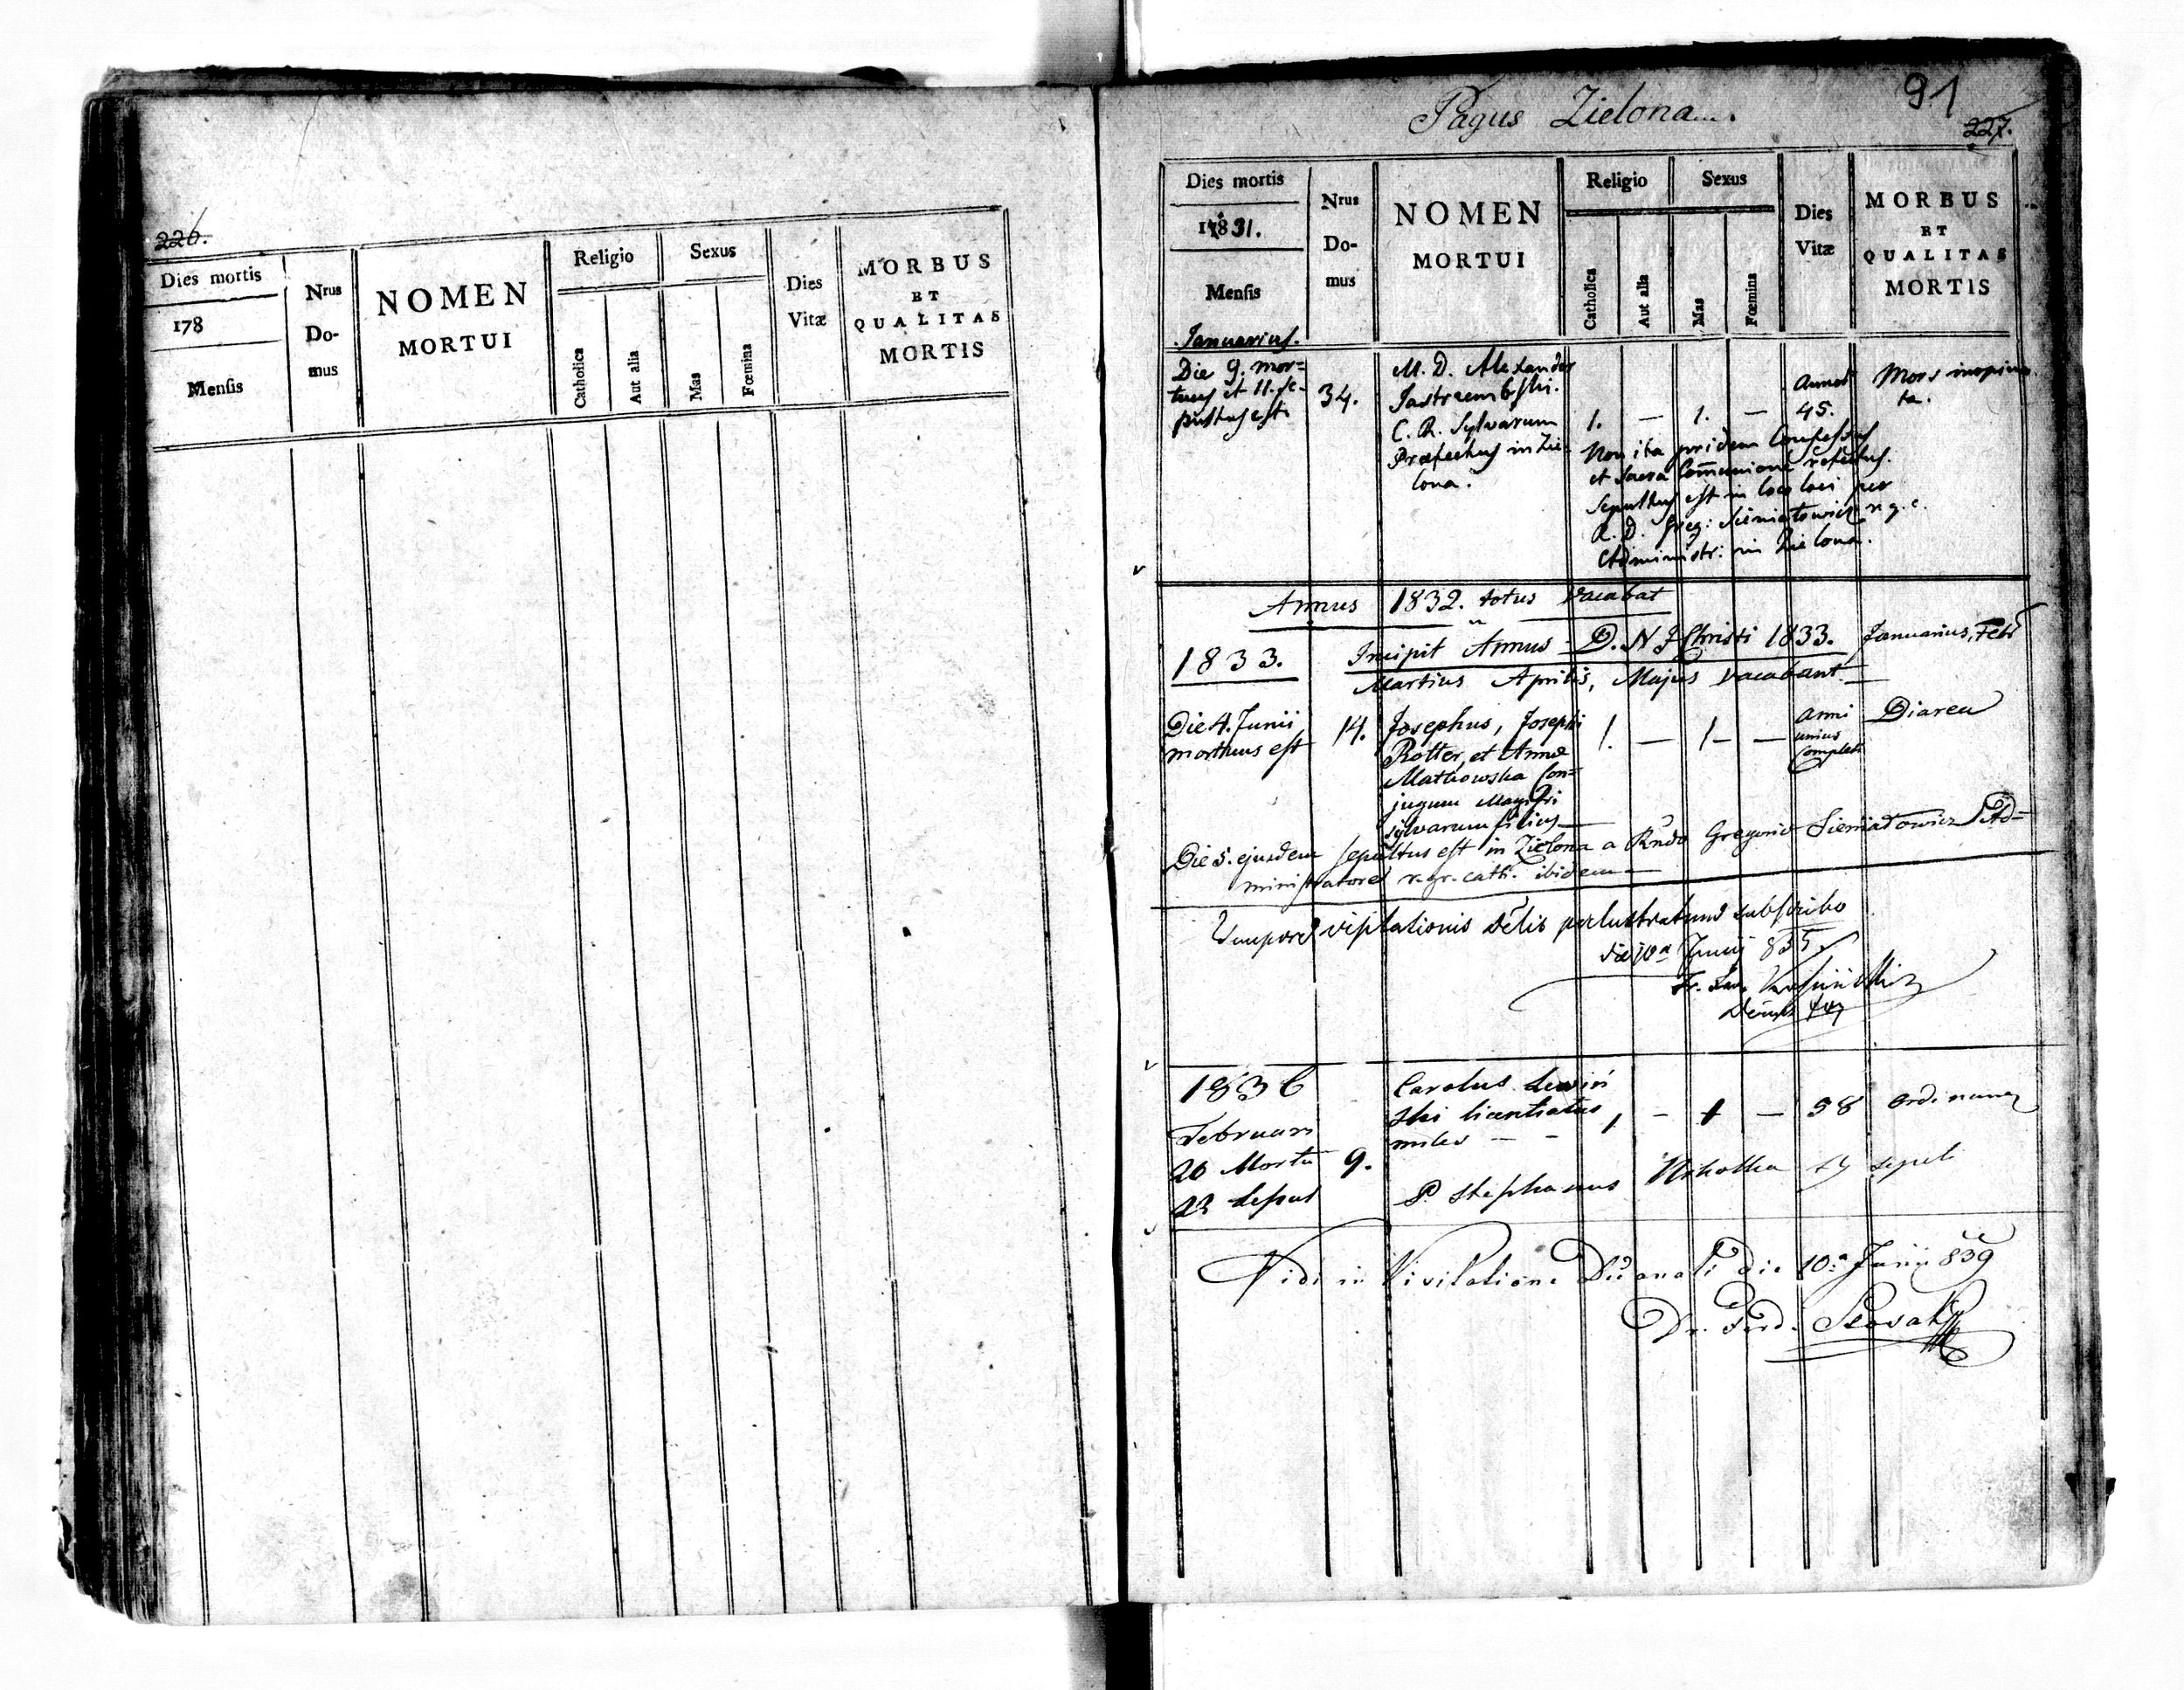 226.
Dies mortis
178
Mensis
Nrus
Do-
mus
NOMEN
MORTUI
Religio
Catholica
Aut alia
Sexus
Mas
Fœmina
Dies
Vitæ
MORBUS
ET
QUALITAS
MORTIS
Pagus Zielona
91
227.
Dies mortis
1831.
Mensis
Januarius.
Nrus
Do-
mus
NOMEN
MORTUI
Religio
Catholica
Aut alia
Sexus
Mas
Fœmina
Dies
Vitæ
MORBUS
ET
QUALITAS
MORTIS
Die 9. mor=
tuus et 11. se-
pultus est
34.
M. D. Alexander
Jastrzembski.
C. R. Sylvarum
Præfectus in Zie-
lona.
1. — 1. —
Annos
45.
Mors inopina
ta.
Non ita pridem Confessus
et Sacra Communione refectus.
Sepultus est in loco loci per
R. D. Greg: Sieniatowicz r. g. c.
Administr: in Zielona.
Annus 1832. totus vacabat
1833.
Incipit Annus D. N J Christi 1833. Januarius, Feb
Martius Aprilis, Majus vacabant.
Die 4. Junii
mortuus est
14.
Josephus, Josephi
Rotter, et Annæ
Matkowska Con=
jugum Magistri
sylvarum filius
1. — 1 — —
Anni
unius
completi
Diarea
Die 5. ejusdem sepultus est in Zielona a Rndo Gregorio Sieniatowicz Ad=
ministratore r. gr. cath. ibidem
Tempore visitationis perlustratum subscribo
die 10a Junij 835
1836
Februari
20 Mortu
22 Sepul
9.
Carolus Lewiń
ski licentiatus
miles — —
1 — 1 — 58 ordinaria
P. Stephanus sepel
Vidi in Visitatione Decanali die 10a Junii 839
Dr. Ferd.